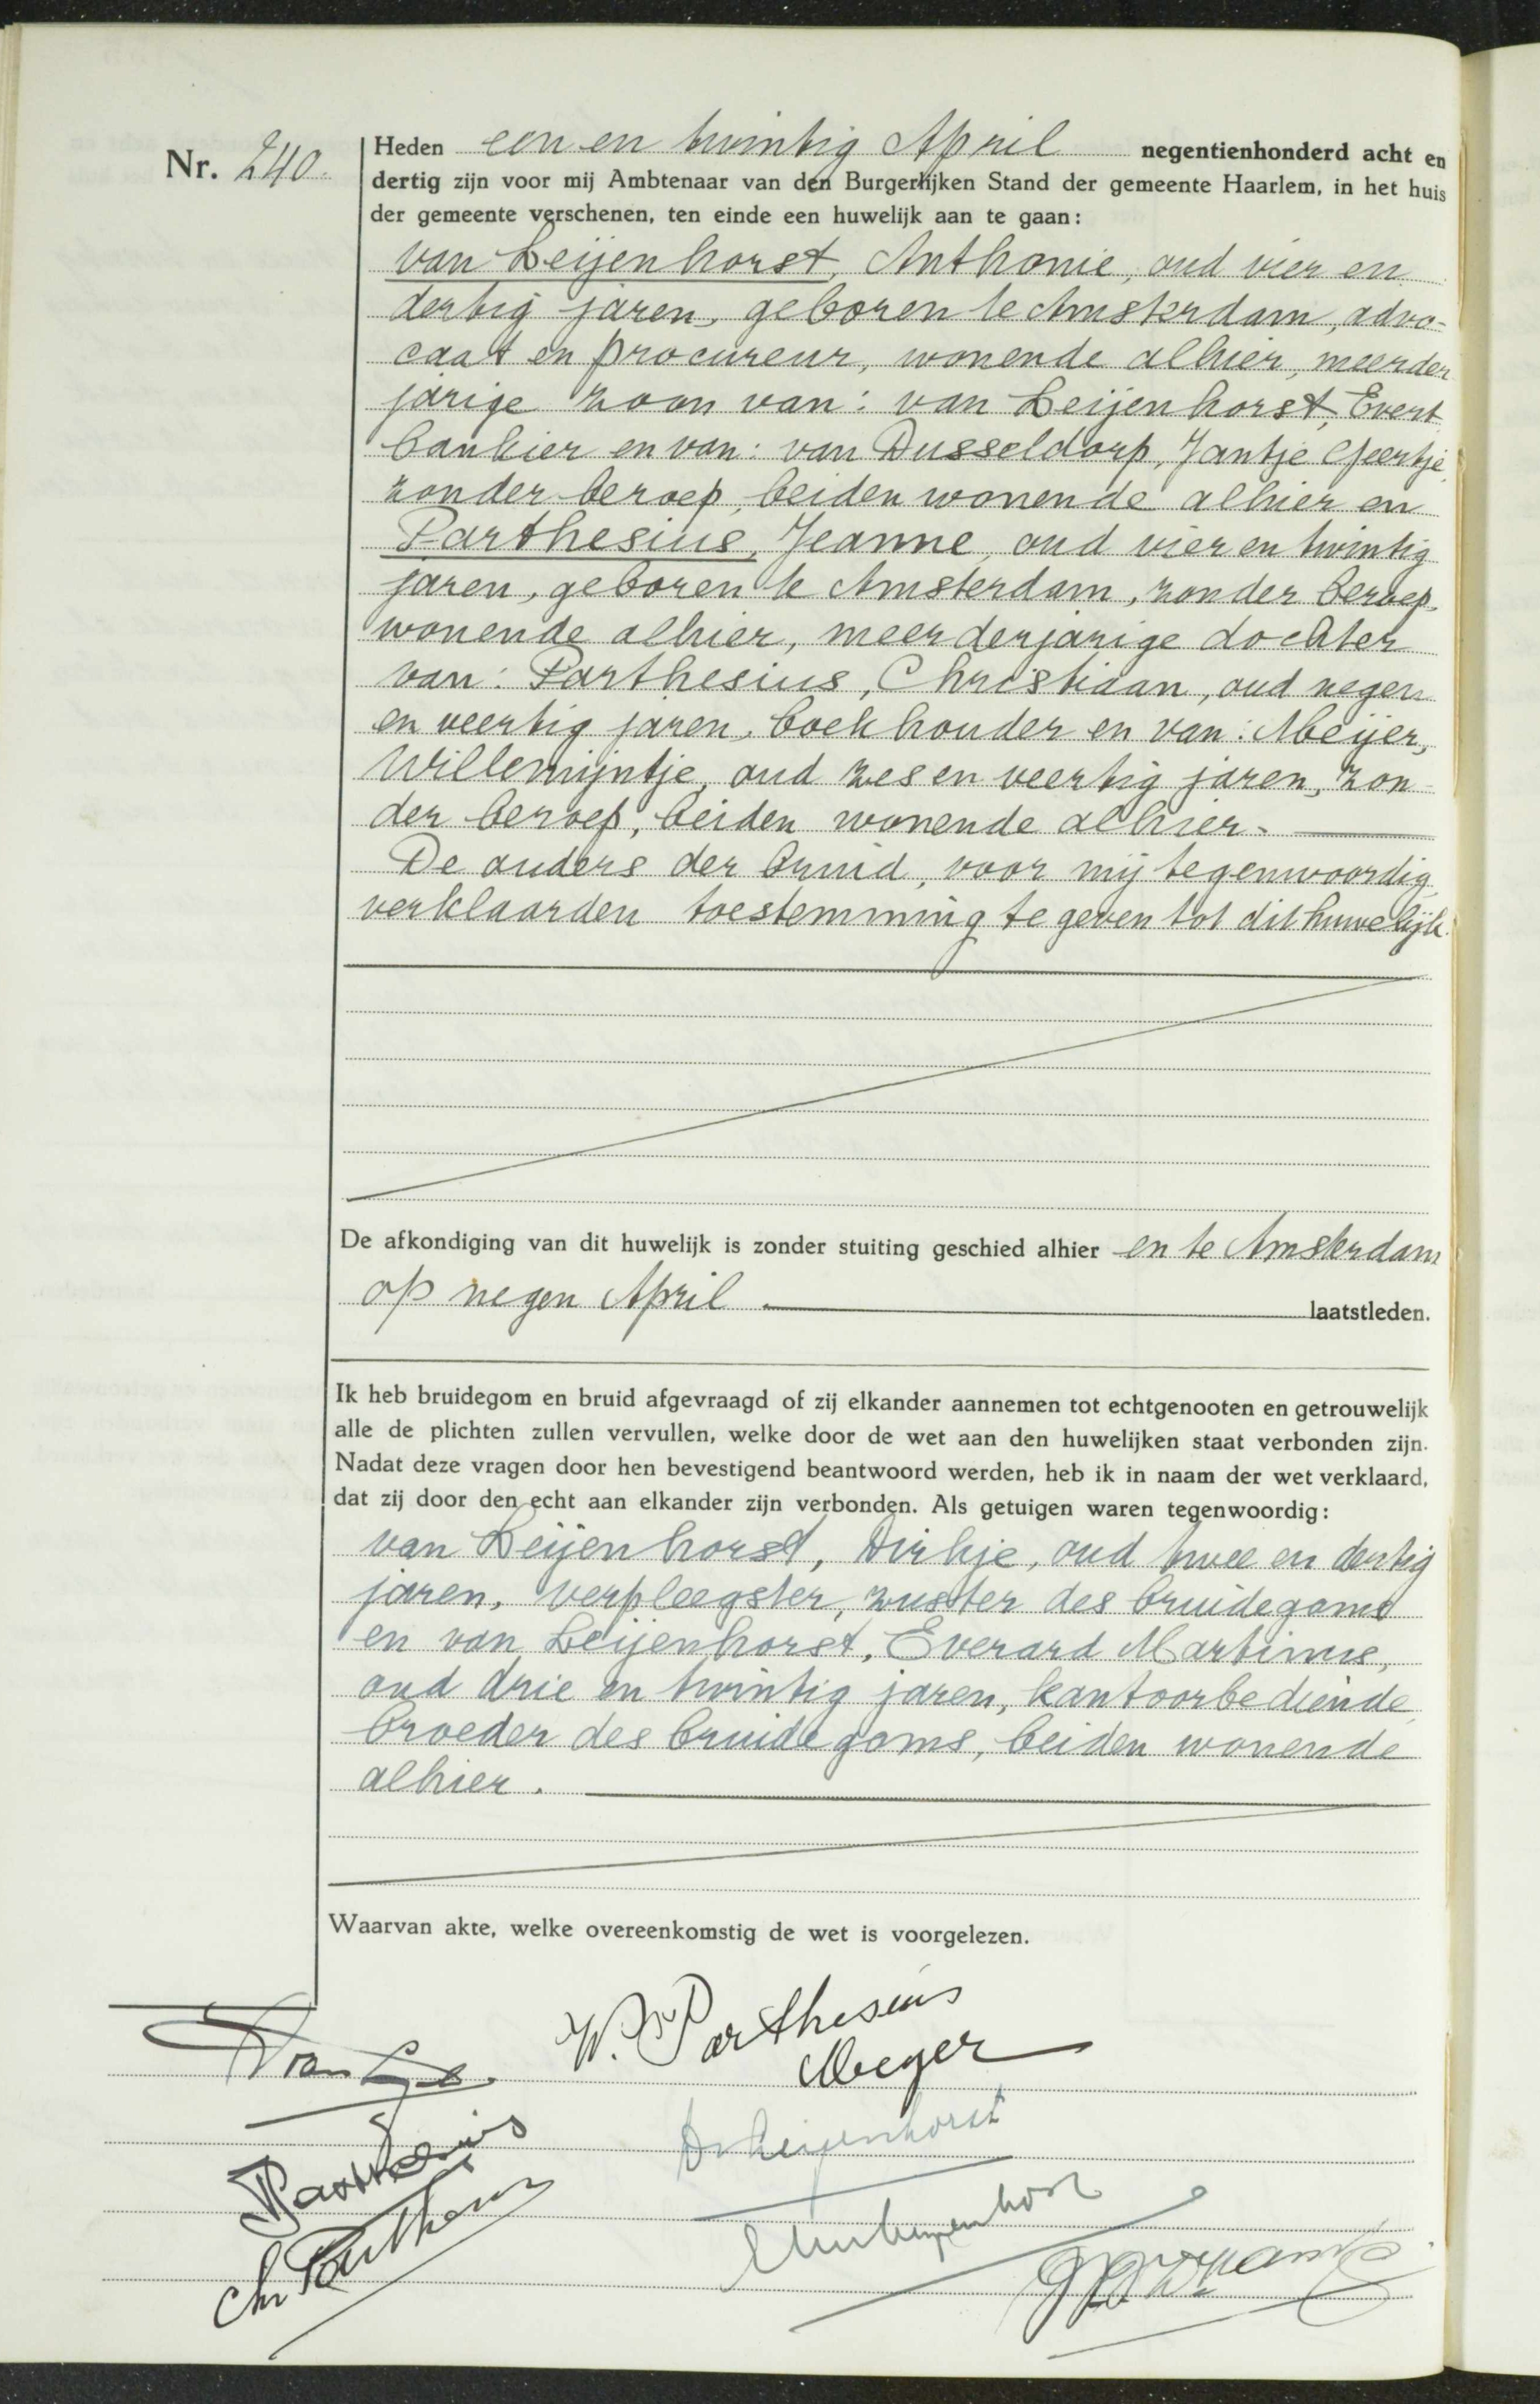 Nr. 240.
Heden een en twintig April negentienhonderd acht en
dertig zijn voor mij Ambtenaar van den Burgerlijken Stand der gemeente Haarlem, in het huis
der gemeente verschenen, ten einde een huwelijk aan te gaan:
van Leijenhorst, Anthonie, oud vier en
dertig jaren, geboren te Amsterdam, advo-
caat en procureur, wonende alhier, meerder
jarige zoon van: van Leijenhorst, Evert
bankier en van: van Dusseldorp, Jantje Geertje,
zonder beroep, beiden wonende alhier en
Parthesius, Jeanne, oud vier en twintig
jaren, geboren te Amsterdam, zonder beroep,
wonende alhier, meerderjarige dochter
van: Parthesius, Christiaan, oud negen
en veertig jaren, boekhouder en van: Meijer,
Willemijntje, oud zes en veertig jaren, zon-
der beroep, beiden wonende alhier.
De ouders der bruid, voor mij tegenwoordig,
verklaarden toestemming te geven tot dit huwelijk.
De afkondiging van dit huwelijk is zonder stuiting geschied alhier en te Amsterdam
op negen April laatstleden.
Ik heb bruidegom en bruid afgevraagd of zij elkander aannemen tot echtgenooten en getrouwelijk
alle de plichten zullen vervullen, welke door de wet aan den huwelijken staat verbonden zijn.
Nadat deze vragen door hen bevestigend beantwoord werden, heb ik in naam der wet verklaard,
dat zij door den echt aan elkander zijn verbonden. Als getuigen waren tegenwoordig:
van Leijenhorst, Dirkje, oud twee en dertig
jaren, verpleegster, zuster des bruidegoms
en van Leijenhorst, Everard Martinus,
oud drie en twintig jaren, kantoorbediende,
broeder des bruidegoms, beiden wonende
alhier.
Waarvan akte, welke overeenkomstig de wet is voorgelezen.
W. Parthesius
Meyer
JParthesius
Chr Parthesius